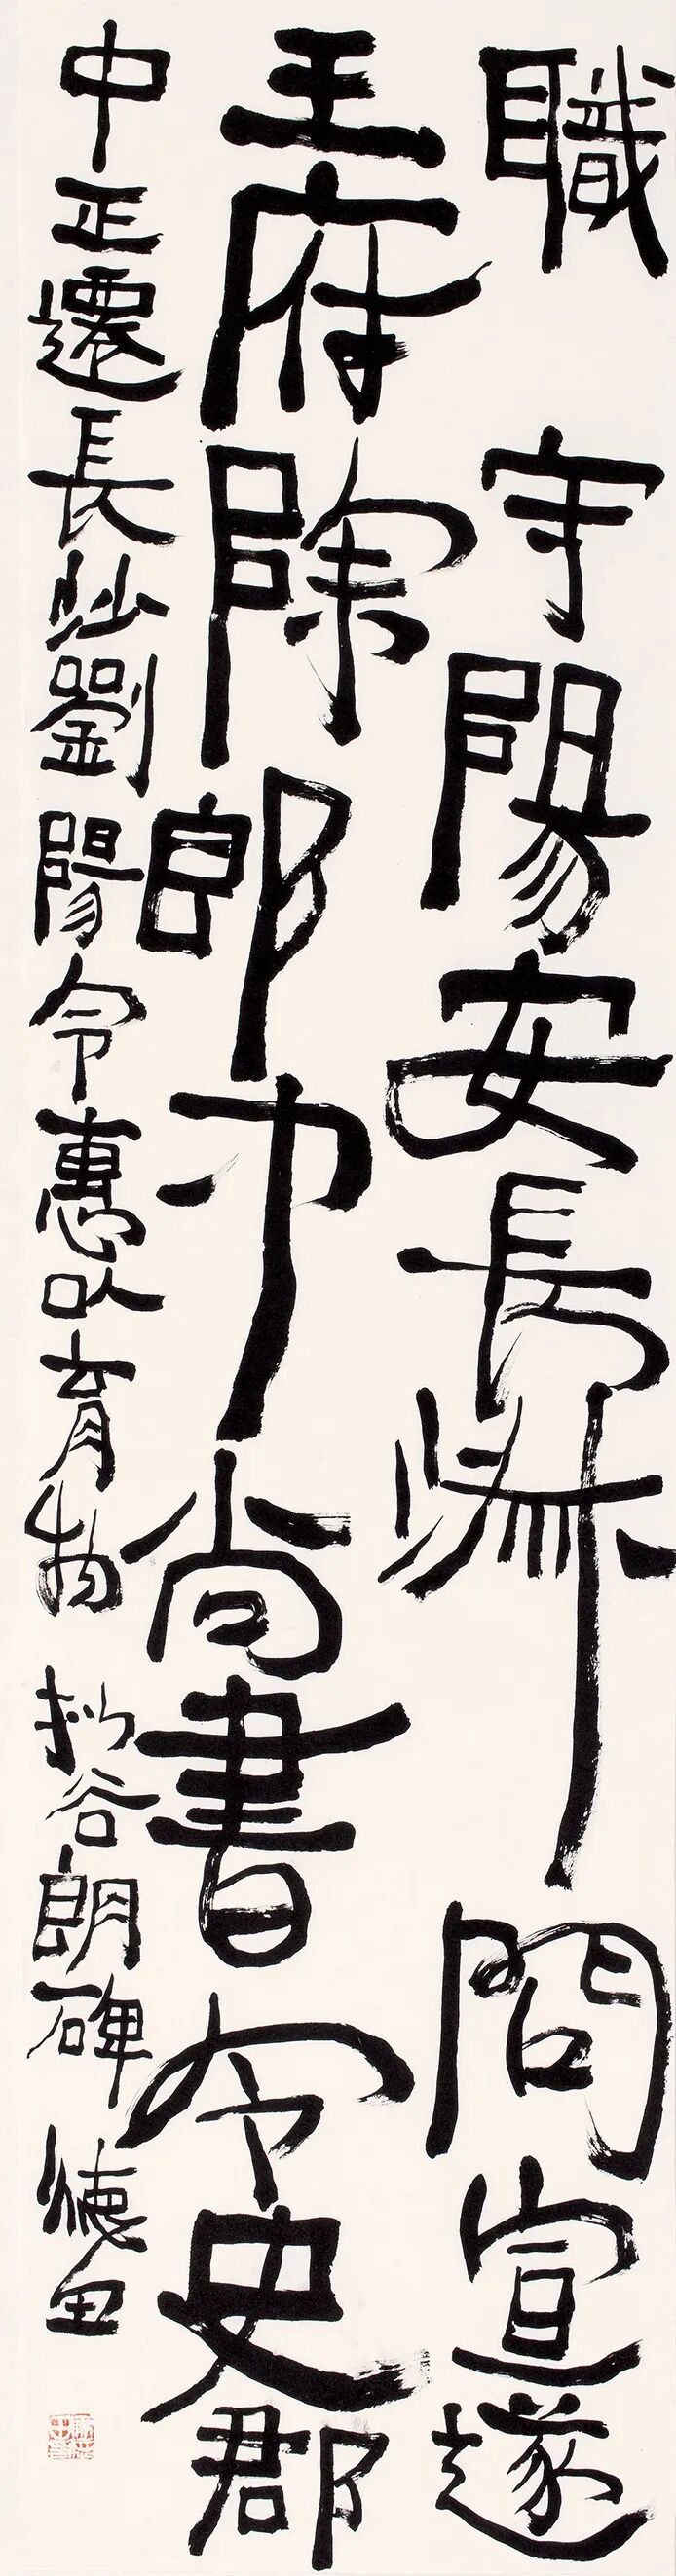 職守陽安長問宣遂
王府除郎中尚書令史郡
中正遷長沙劉陽令惠以育物 拟谷朗碑